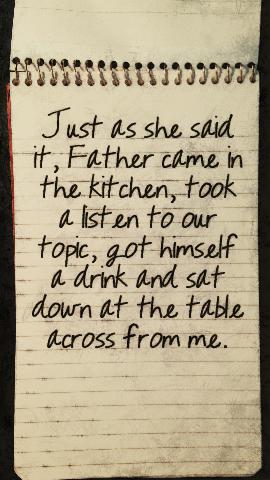 Just as she said
it, Father came in
the kitchen, took
a listen to our
topic, got himself
a drink and sat
down at the table
across from me.